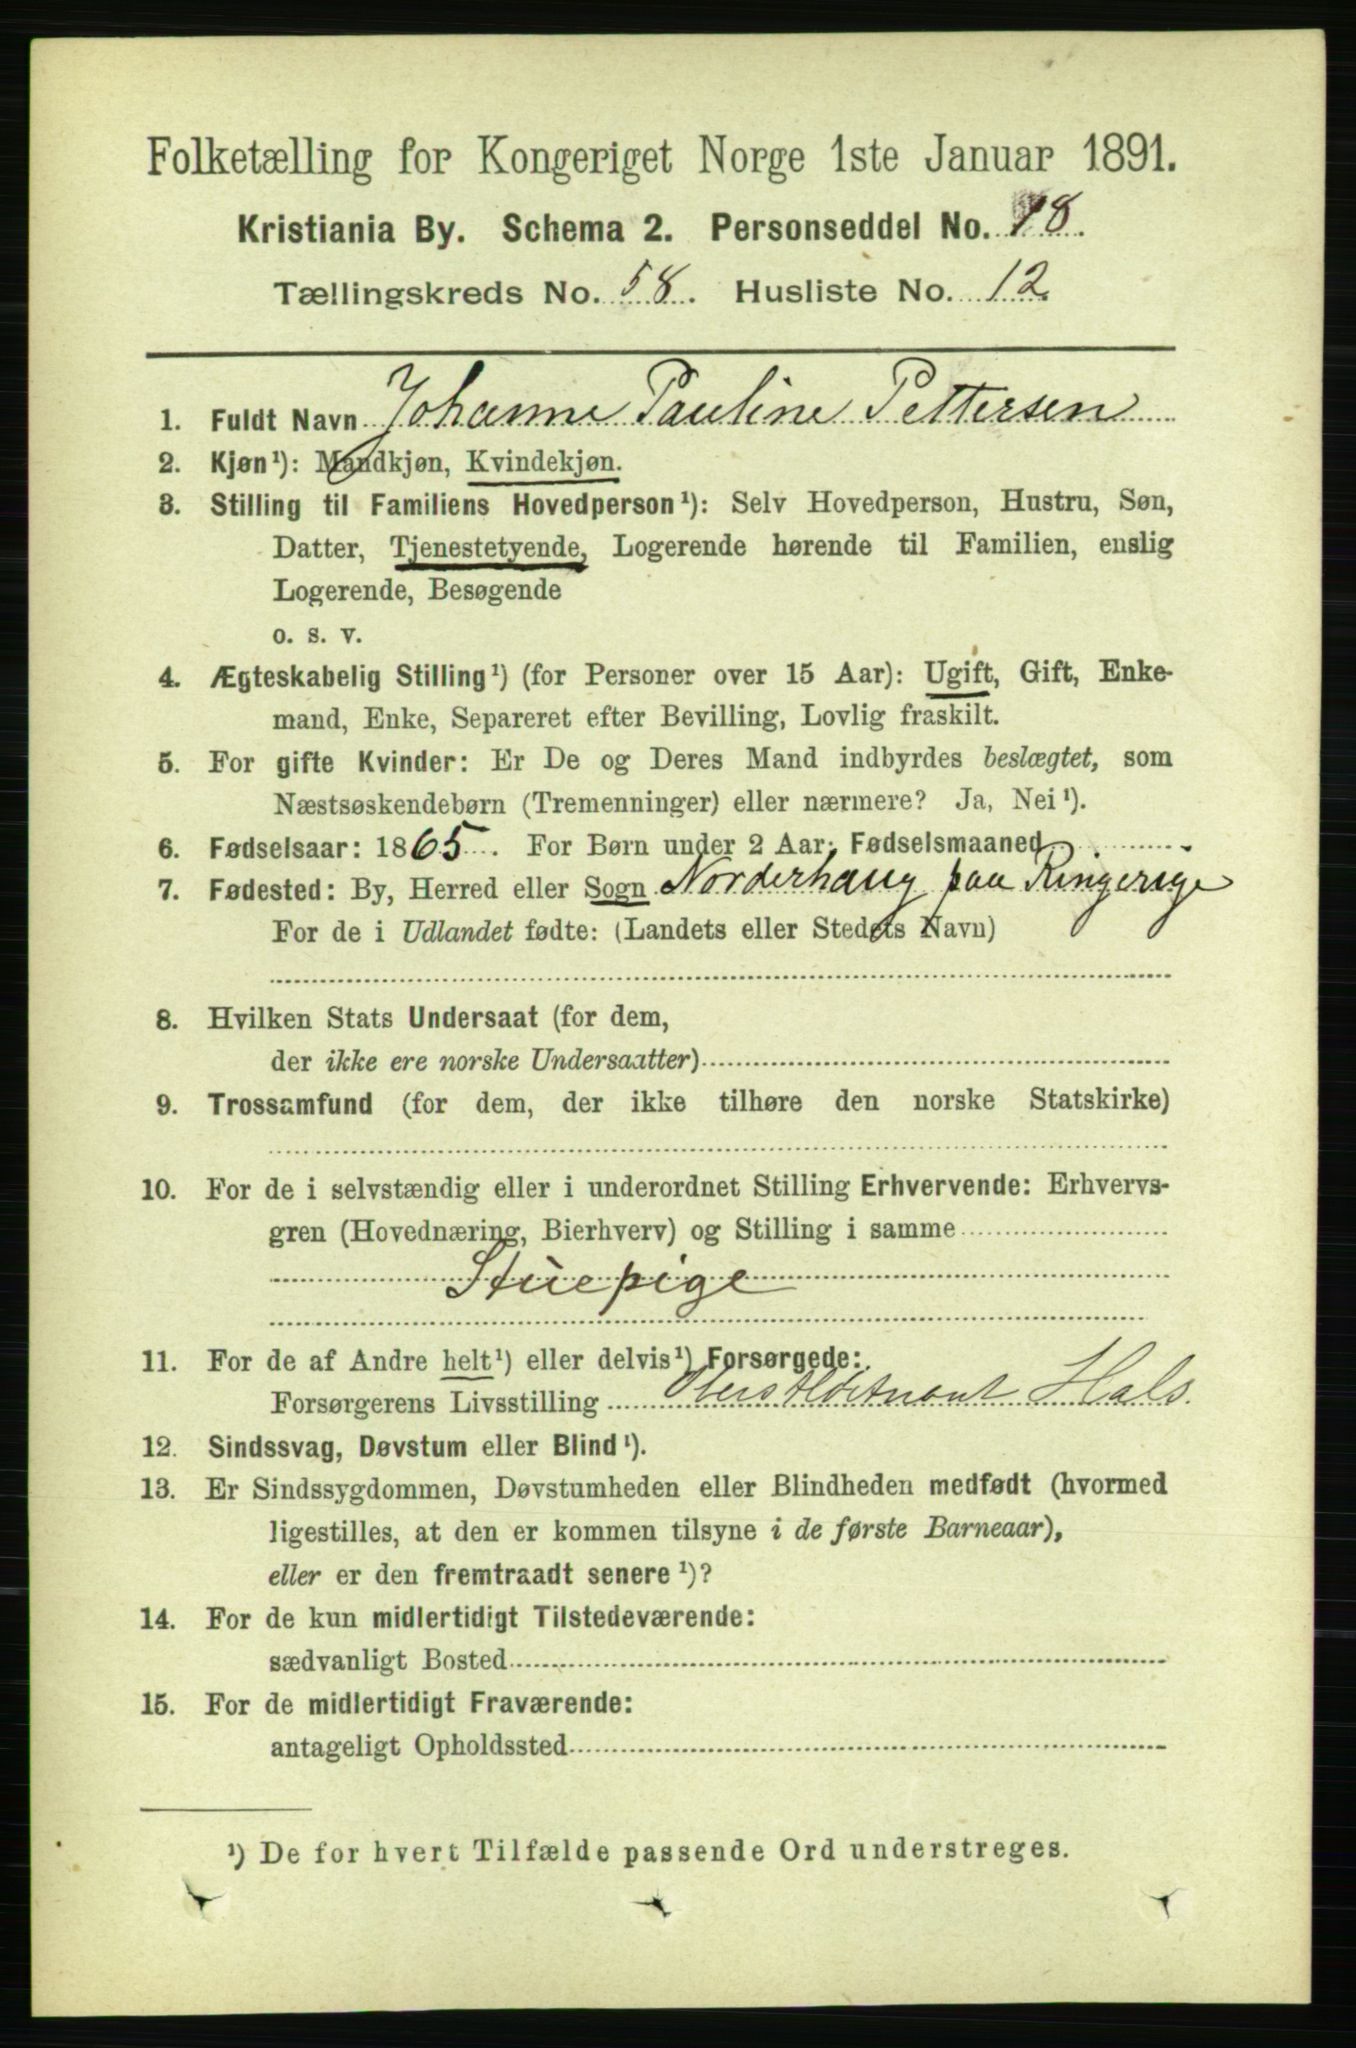 Folketælling for Kongeriget Norge 1ste Januar 1891.
Kristiania By. Schema 2. Personseddel No. 18.
Tællingskreds No. 58. Husliste No. 12.
1. Fuldt Navn Johanne Pauline Pettersen
2. Kjøn¹): Mandkjøn, Kvindekjøn.
3. Stilling til Familiens Hovedperson¹): Selv Hovedperson, Hustru, Søn,
Datter, Tjenestetyende, Logerende hørende til Familien, enslig
Logerende, Besøgende
o. s. v.
4. Ægteskabelig Stilling¹) (for Personer over 15 Aar): Ugift, Gift, Enke-
mand, Enke, Separeret efter Bevilling, Lovlig fraskilt.
5. For gifte Kvinder: Er De og Deres Mand indbyrdes beslægtet, som
Næstsøskendebørn (Tremenninger) eller nærmere? Ja, Nei¹).
6. Fødselsaar: 1865. For Børn under 2 Aar: Fødselsmaaned
7. Fødested: By, Herred eller Sogn Norderhaug paa Ringerige
For de i Udlandet fødte: (Landets eller Stedets Navn)
8. Hvilken Stats Undersaat (for dem,
der ikke ere norske Undersaatter)
9. Trossamfund (for dem, der ikke tilhøre den norske Statskirke)
10. For de i selvstændig eller i underordnet Stilling Erhvervende: Erhvervs-
gren (Hovednæring, Bierhverv) og Stilling i samme
Stuepige
11. For de af Andre helt¹) eller delvis¹) Forsørgede:
Forsørgerens Livsstilling Oberstløitnant Hals.
12. Sindssvag, Døvstum eller Blind¹).
13. Er Sindssygdommen, Døvstumheden eller Blindheden medfødt (hvormed
ligestilles, at den er kommen tilsyne i de første Barneaar),
eller er den fremtraadt senere¹)?
14. For de kun midlertidigt Tilstedeværende:
sædvanligt Bosted
15. For de midlertidigt Fraværende:
antageligt Opholdssted
¹) De for hvert Tilfælde passende Ord understreges.